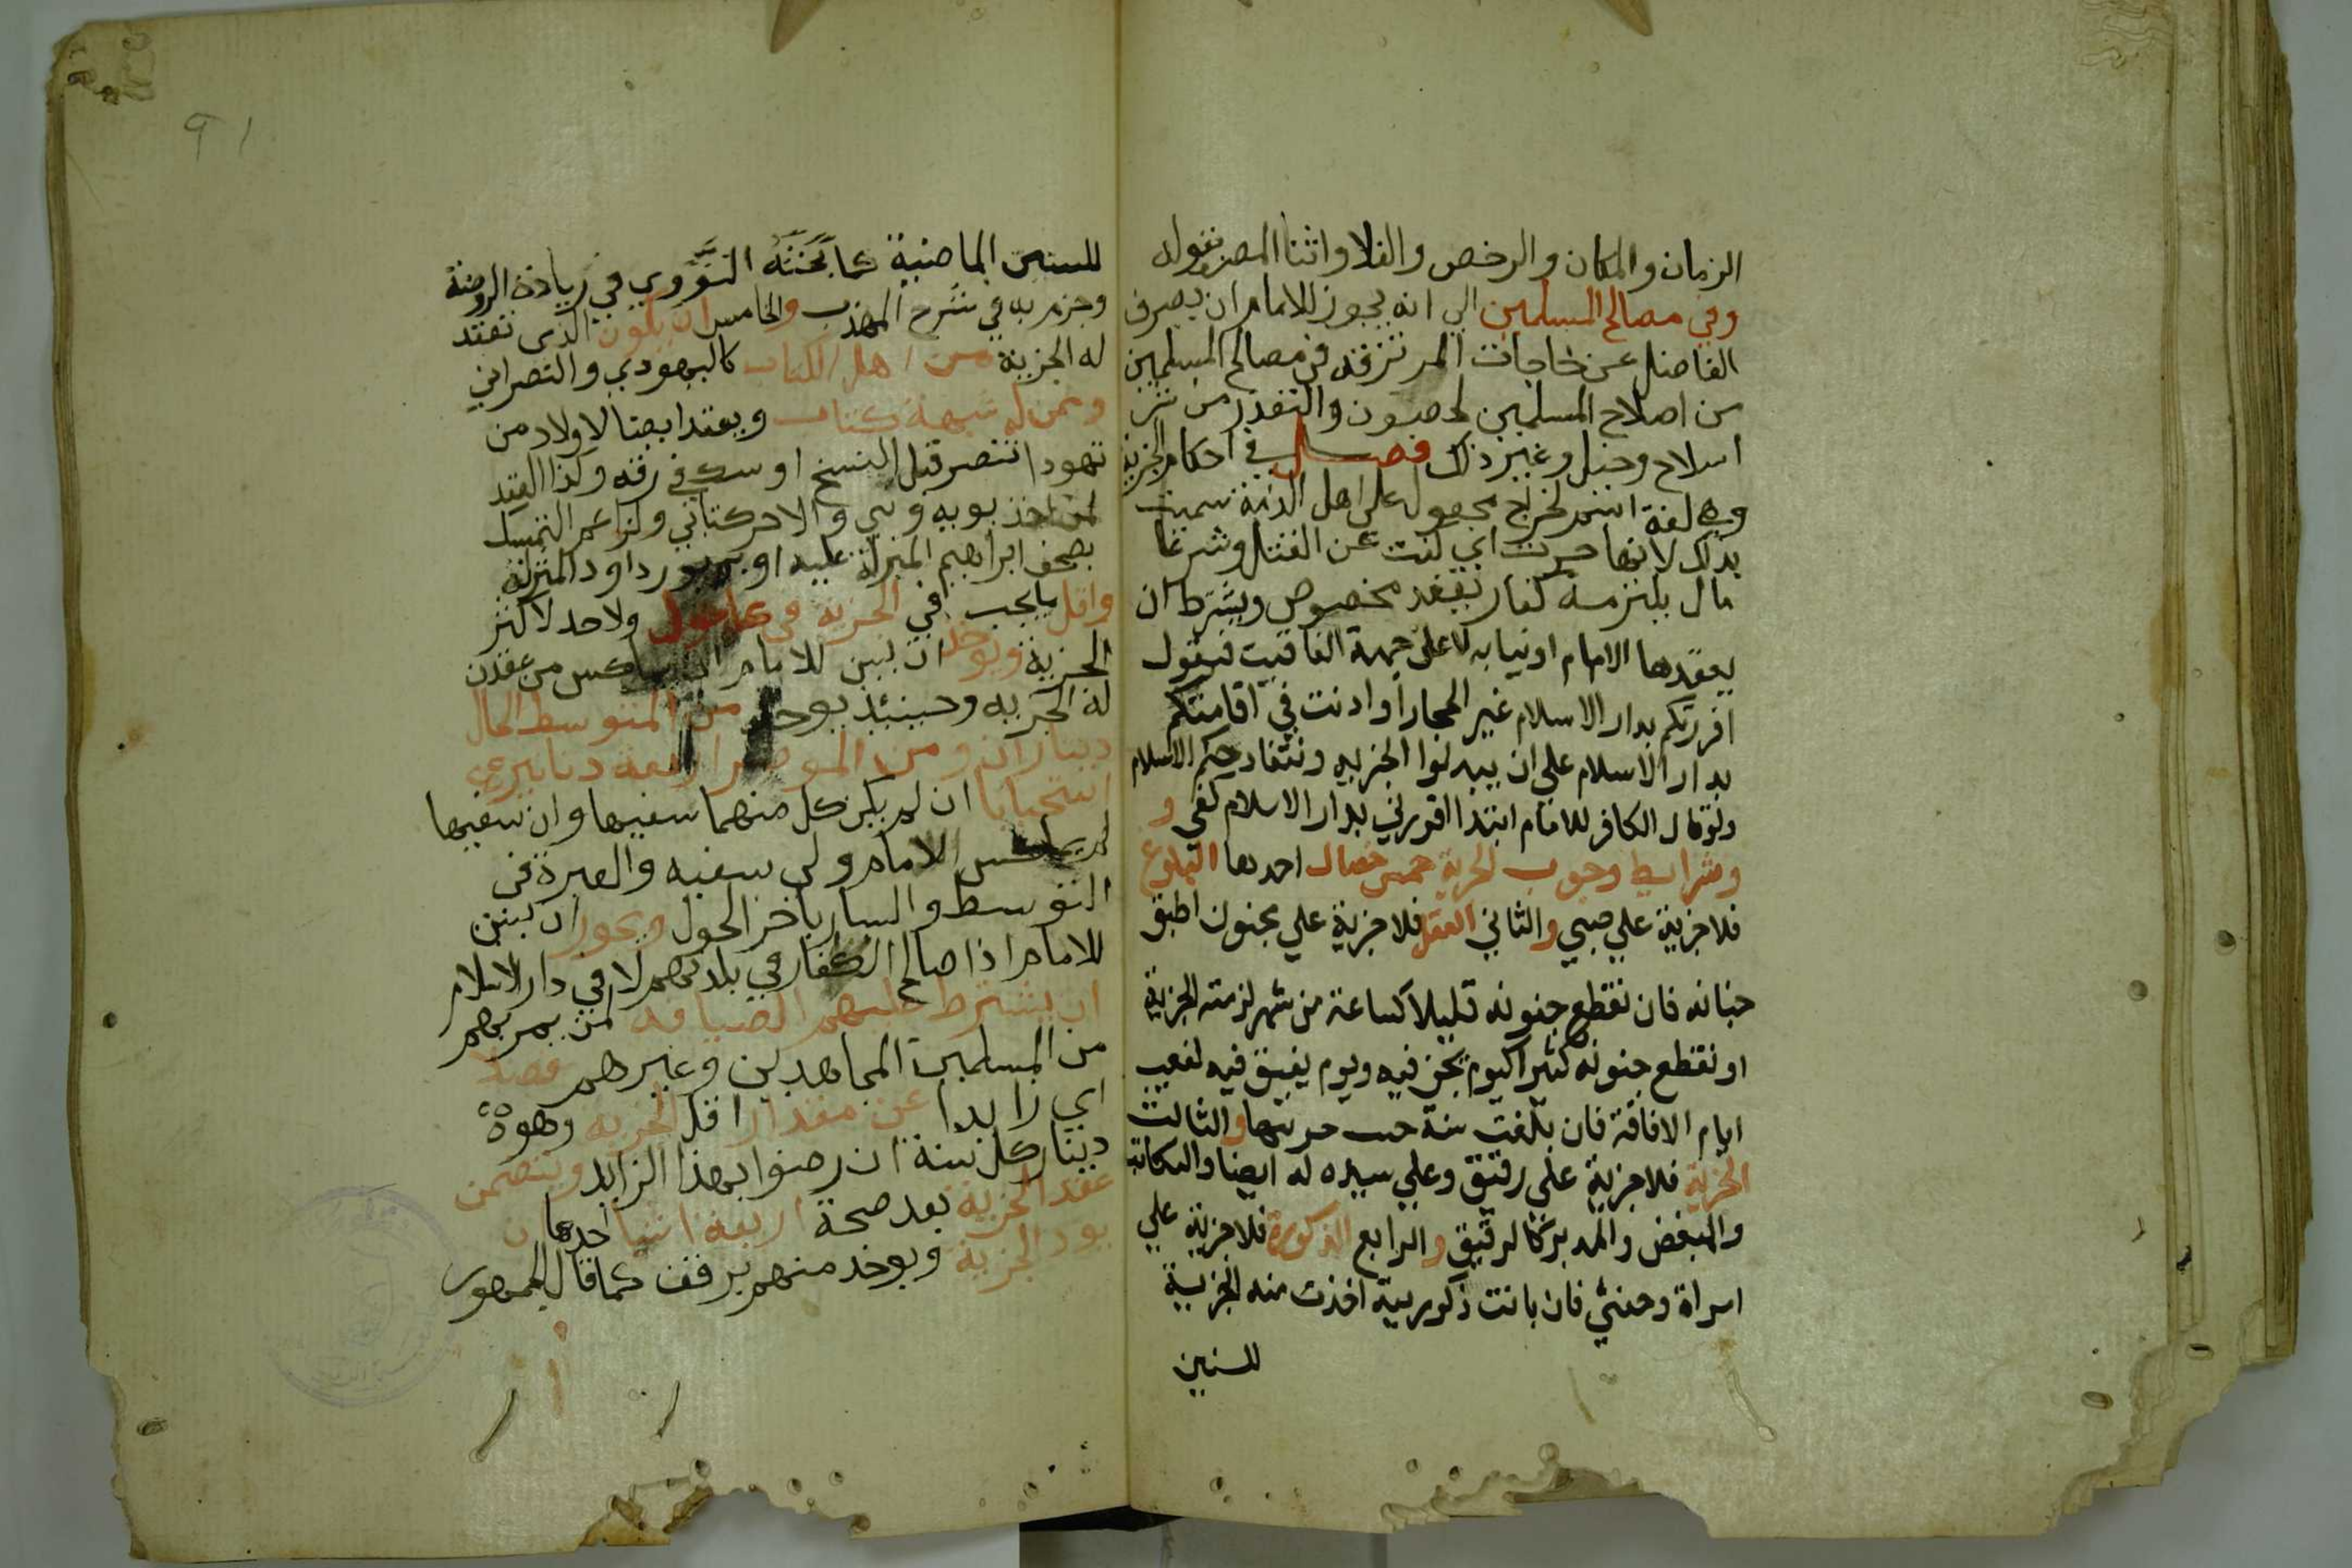 الزمان والمكان والرخص والغلا واثنا المصر بقوله
وفي مصالح المسلمين الي انه يجوز للامام ان يصرف
الفاضل عن حاجات المرتزقه في مصالح المسلمين
من اصلاح المسلمين لحصون والتغدر من شر
اسلاح وخيل وغير ذلك فصل في احكام الجزية
وهي لغة اسم لخراج مجعول على اهل الذمة سميت
بذلك لانها جزت اي كفت عن القتل وشرعا
مال يلتزمه كفار بعقد مخصوص ويشترط ان
يعقدها الامام او نيابه لا على جهة التاقيت فيقول
اقررتكم بدار الاسلام غير الحجاز او اذنت في اقامتكم
بدار الاسلام على ان يبدلوا الجزيه وتنقاد حكم الاسلام
ولو قال الكافر للامام ابتدا اقررني بدار الاسلام كفي و
وشرايط وجوب الجزية خمس خصال احدها البلوغ
فلا جزية علي صبي والثاني العقل فلا جزية علي مجنون اطبق
جنانه فان تقطع جنونه قليلا كساعة من شهر لزمته الجزية
او تقطع جنونه كثيرا كيوم يجن فيه ويوم يفيق فيه لفعيب
ايام الافاقة فان بلغت سنة حب حريتها والثالث
الحرية فلا جزية على رقيق وعلي سيده له ايضا والمكاتب
والمبعض والمدبر كالرقيق والرابع الذكورة فلا جزية علي
امراة وخنثي فان بانت ذكوريته اخذت منه الجزية
للسنين
٩١
للسنين الماضية كما بحثه النووي في زيادة الروضة
وجزم به في شرح المهذب والخامس ان يكون الذي تعقد
له الجزية من اهل الكتاب كاليهودي والنصراني
وممن له شبهة كتاب ويعقد ايضا لاولاد من
تهود او تنصر قبل النسخ او شك في رقته وكذا العقد
لمن احد بويه وثني والاخر كتابي ولزاعم التمسك
بصحف ابراهيم المنزلة عليه او بزبور داود المنزلة
واقل ما يجب في الجزية في كل حول ولا حد لاكثر
الجزية ويوخذ ان يبين للامام ان يماكس من عقدت
له الجزيه وحينئذ يوخذ من المتوسط الحال
ديناران ومن الموسر اربعة دنانير
استحبابا ان لم يكن كل منهما سفيها وان سفيها
لم يماكس الامام ولي سفيه والعبرة في
التوسط واليسار باخر الحول ويجوز ان يبين
للامام اذا صالح الكفار في بلدتهم لا في دار الاسلام
ان يشترط عليهم الضيافه لمن يمر بهم
من المسلمين المجاهدين وغيرهم فضلا
اي زايدا عن مقدار اقل الجزيه وهوة
دينار كل سنة ان رضوا بهذا الزايد ويتضمن
عقد الجزية بعد صحة اربعة اشيا احدها ن
يود الجزية ويوخد منهم برفق كما قال الجمهور